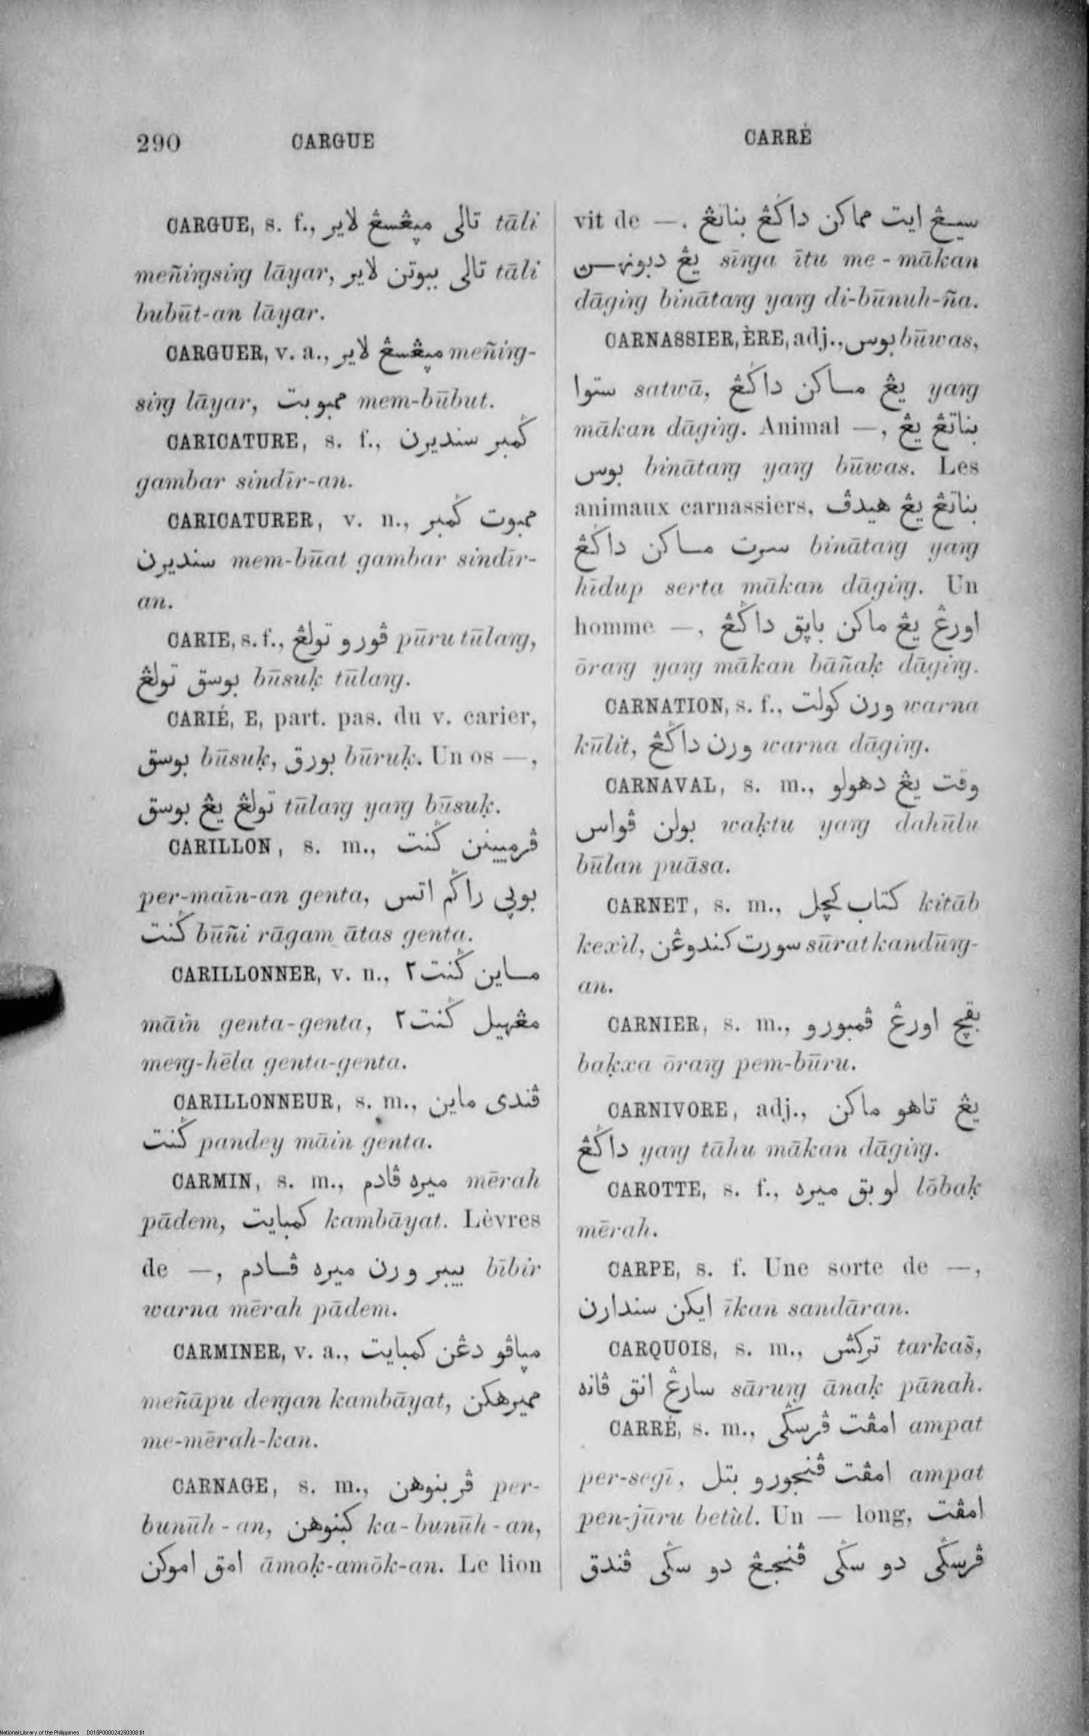 290 CARGUE CARRÉ
CARGUE, s. f., تالي مڽڠسڠ لاير tāli
meñiṅgsiṅg lāyar, تالي ببوتن لاير tāli
bubūt-an lāyar.
CARGUER, v. a., مڽڠسڠ لاير meñiṅg-
siṅg lāyar, ممبوبت mem-būbut.
CARICATURE, s. f., ݢمبر سنديرن
gambar sindīr-an.
CARICATURER, v. n., ممبوت ݢمبر
سنديرن mem-būat gambar sindīr-
an.
CARIE, s. f., ڤورو تولڠ pūru tūlaṅg,
بوسق تولڠ būsuḳ tūlaṅg.
CARIÉ, E, part. pas. du v. carier,
بوسق būsuḳ, بورق būruḳ. Un os —,
تولڠ يڠ بوسق tūlaṅg yaṅg būsuḳ.
CARILLON, s. m., ڤرميينن ݢنت
per-maīn-an genta, بوڽي راݢم اتس
ݢنت būñi rāgam ātas genta.
CARILLONNER, v. n., ماين ݢنت٢
māin genta-genta, مڠهيل ݢنت٢
meṅg-hēla genta-genta.
CARILLONNEUR, s. m., ڤندى ماين
ݢنت pandey māin genta.
CARMIN, s. m., ميره ڤادم mērah
pādem, كمبايت kambāyat. Lèvres
de —, بيبر ورن ميره ڤادم bībir
warna mērah pādem.
CARMINER, v. a., مڽاڤو دڠن كمبايت
meñāpu deṅgan kambāyat, مميرهكن
me-mērah-kan.
CARNAGE, s. m., ڤربنوهن per-
bunūh-an, كبنوهن ka-bunūh-an,
امق اموكن āmoḳ-amōk-an. Le lion
vit de —, سيڠ ايت مماكن داݢڠ بناتڠ
يڠ دبونهـن sīnga ītu me-mākan
dāgiṅg binātaṅg yaṅg di-būnuh-ña.
CARNASSIER, ÈRE, adj., بوس būwas,
ستوا satwā, يڠ ماكن داݢڠ yaṅg
mākan dāgiṅg. Animal —, بناتڠ يڠ
بوس binātaṅg yaṅg būwas. Les
animaux carnassiers, بناتڠ يڠ هيدڤ
سرت ماكن داݢڠ binātaṅg yaṅg
hīdup serta mākan dāgiṅg. Un
homme —, اورڠ يڠ ماكن باڽق داݢڠ
ōraṅg yaṅg mākan bāñaḳ dāgiṅg.
CARNATION, s. f., ورن كولت warna
kūlit, ورن داݢڠ warna dāgiṅg.
CARNAVAL, s. m., وقت يڠ دهولو
بولن ڤواس waḳtu yaṅg dahūlu
būlan puāsa.
CARNET, s. m., كتاب كچل kitāb
kexil, سورت كندوڠن sūrat kandūṅg-
an.
CARNIER, s. m., بقچ اورڠ ڤمبورو
baḳxa ōraṅg pem-būru.
CARNIVORE, adj., يڠ تاهو ماكن
داݢڠ yaṅg tāhu mākan dāgiṅg.
CAROTTE, s. f., لوبق ميره lōbaḳ
mērah.
CARPE, s. f. Une sorte de —,
ايكن سندارن īkan sandāran.
CARQUOIS, s. m., تركش tarkaš,
سارڠ انق ڤانه sāruṅg ānaḳ pānah.
CARRÉ, s. m., امڤت ڤرسݢى ampat
per-segī, امڤت ڤنجورو بتل ampat
pen-jūru betùl. Un — long, امڤت
ڤرسݢى دو سݢى ڤنجڠ دو سݢى ڤندق
National Library of the Philippines